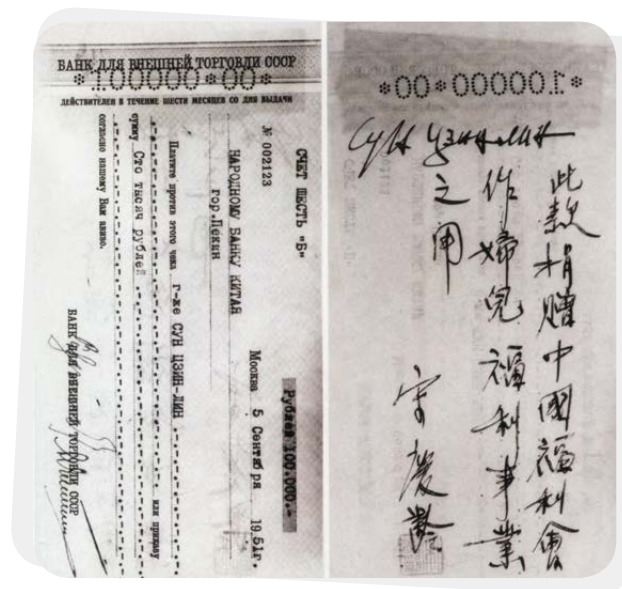 БАНК ДЛЯ ВНЕШНЕЙ ТОРГОВЛИ СССР
*100000*00*
ДЕЙСТВИТЕЛЕН В ТЕЧЕНИЕ ШЕСТИ МЕСЯЦЕВ СО ДНЯ ВЫДАЧИ
СЧЕТ ШЕСТЬ "Б"
Рублей 100.000.-
№ 002123
Москва 5 Сентября 1951г.
НАРОДНОМУ БАНКУ КИТАЯ
гор.Пекин
Платите против этого чека г-же СУН ЦЗИН-ЛИН или приказу
сумму Сто тысяч рублей
согласно нашему Вам авизо.
БАНК ДЛЯ ВНЕШНЕЙ ТОРГОВЛИ СССР
*100000*00*
Сун Цзин-лин
此款捐贈中國福利會
作婦兒福利事業
之用
宋慶齡